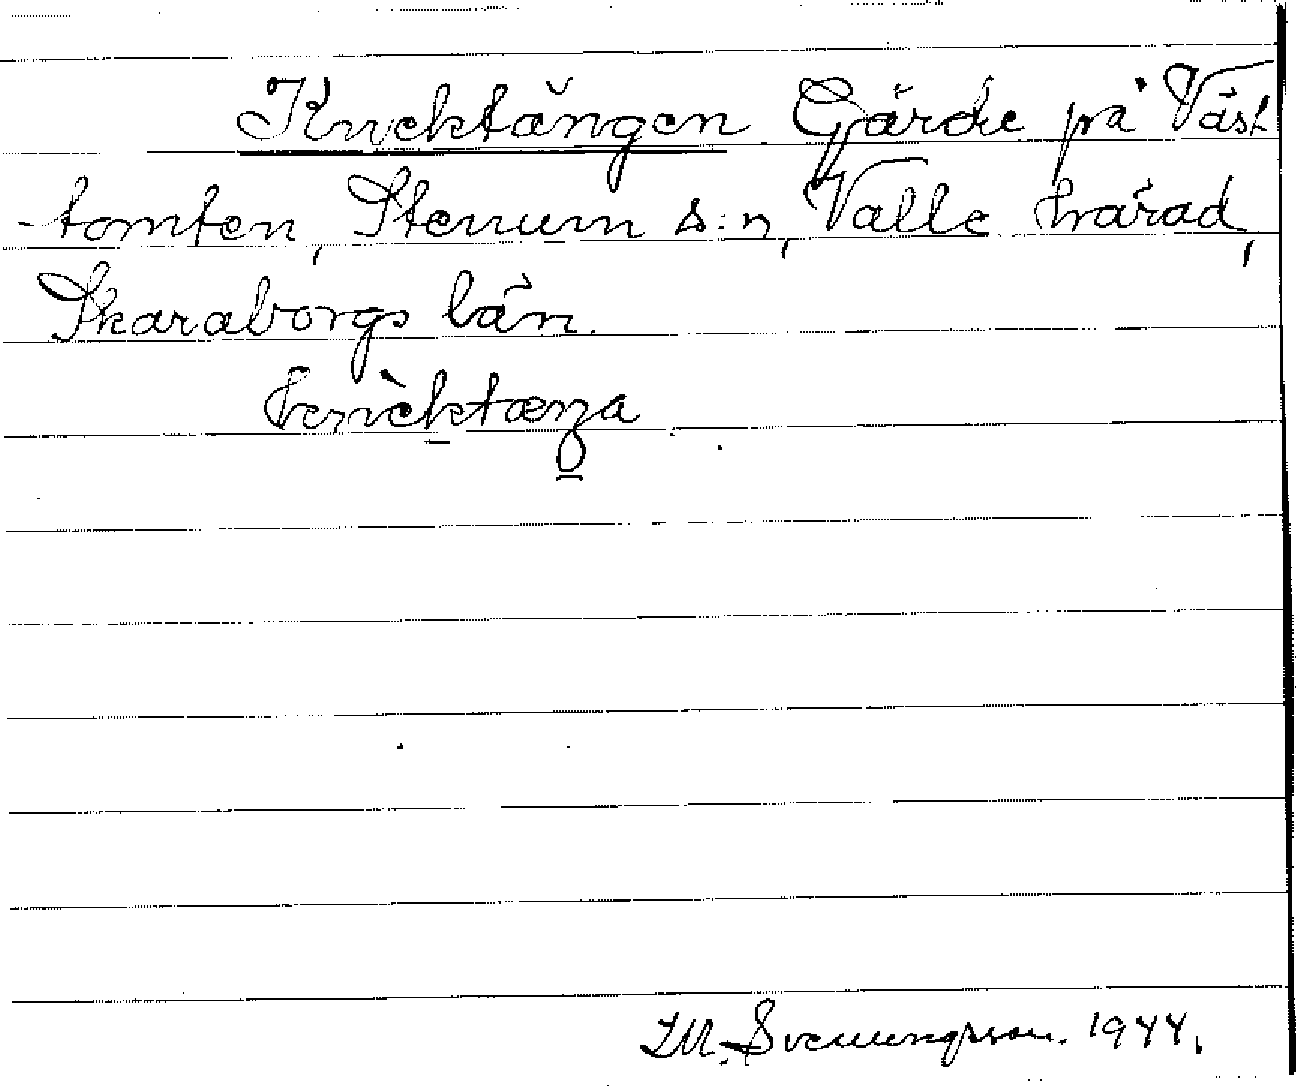 Knektängen Gärde på Väst
-tomten, Stenum s:n, Valle härad,
Skaraborgs län.
M. Svenungsson. 1944.